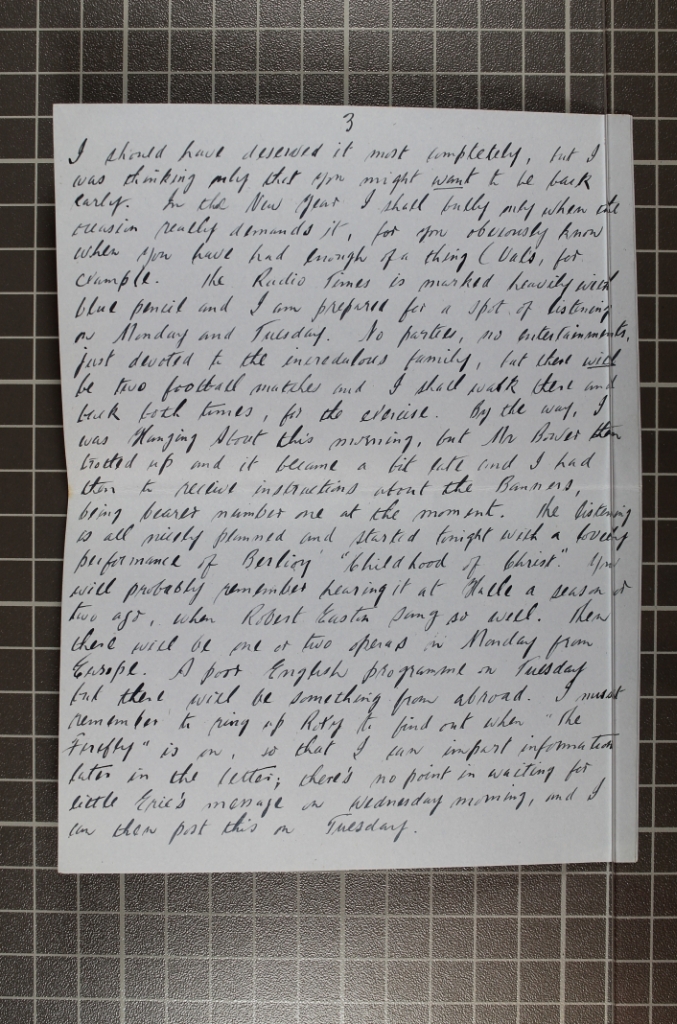 3
I should have deserved it most completely, but I
was thinking only that you might want to be back
early. In the New Year I shall bully only when the
occasion really demands it, for you obviously know
when you have had enough of a thing (Vals, for
example. The Radio Times is marked heavily with
blue pencil and I am prepared for a spot of listening
on Monday and Tuesday. No parties, no entertainments,
just devoted to the incredulous family, but there will
be two football matches and I shall walk there and
back both times, for the exercise. By the way, I
was Hanging About this morning, but Mr Bower then
trotted up and it became a bit late and I had
then to receive instructions about the Banners,
being bearer number one at the moment. The listening
is all nicely planned and started tonight with a lovely
performance of Berlioz' "Childhood of Christ". You
will probably remember hearing it at Halle a season or
two ago, when Robert Easton sang so well. Then
there will be one or two operas in Monday from
Europe. A poor English programme on Tuesday
but there will be something from abroad. I must
remember to ring up Roxy to find out when "The
Firefly" is on, so that I can impart information
later in the letter; there's no point in waiting for
little Eric's message on Wednesday morning, and I
can then post this on Tuesday.